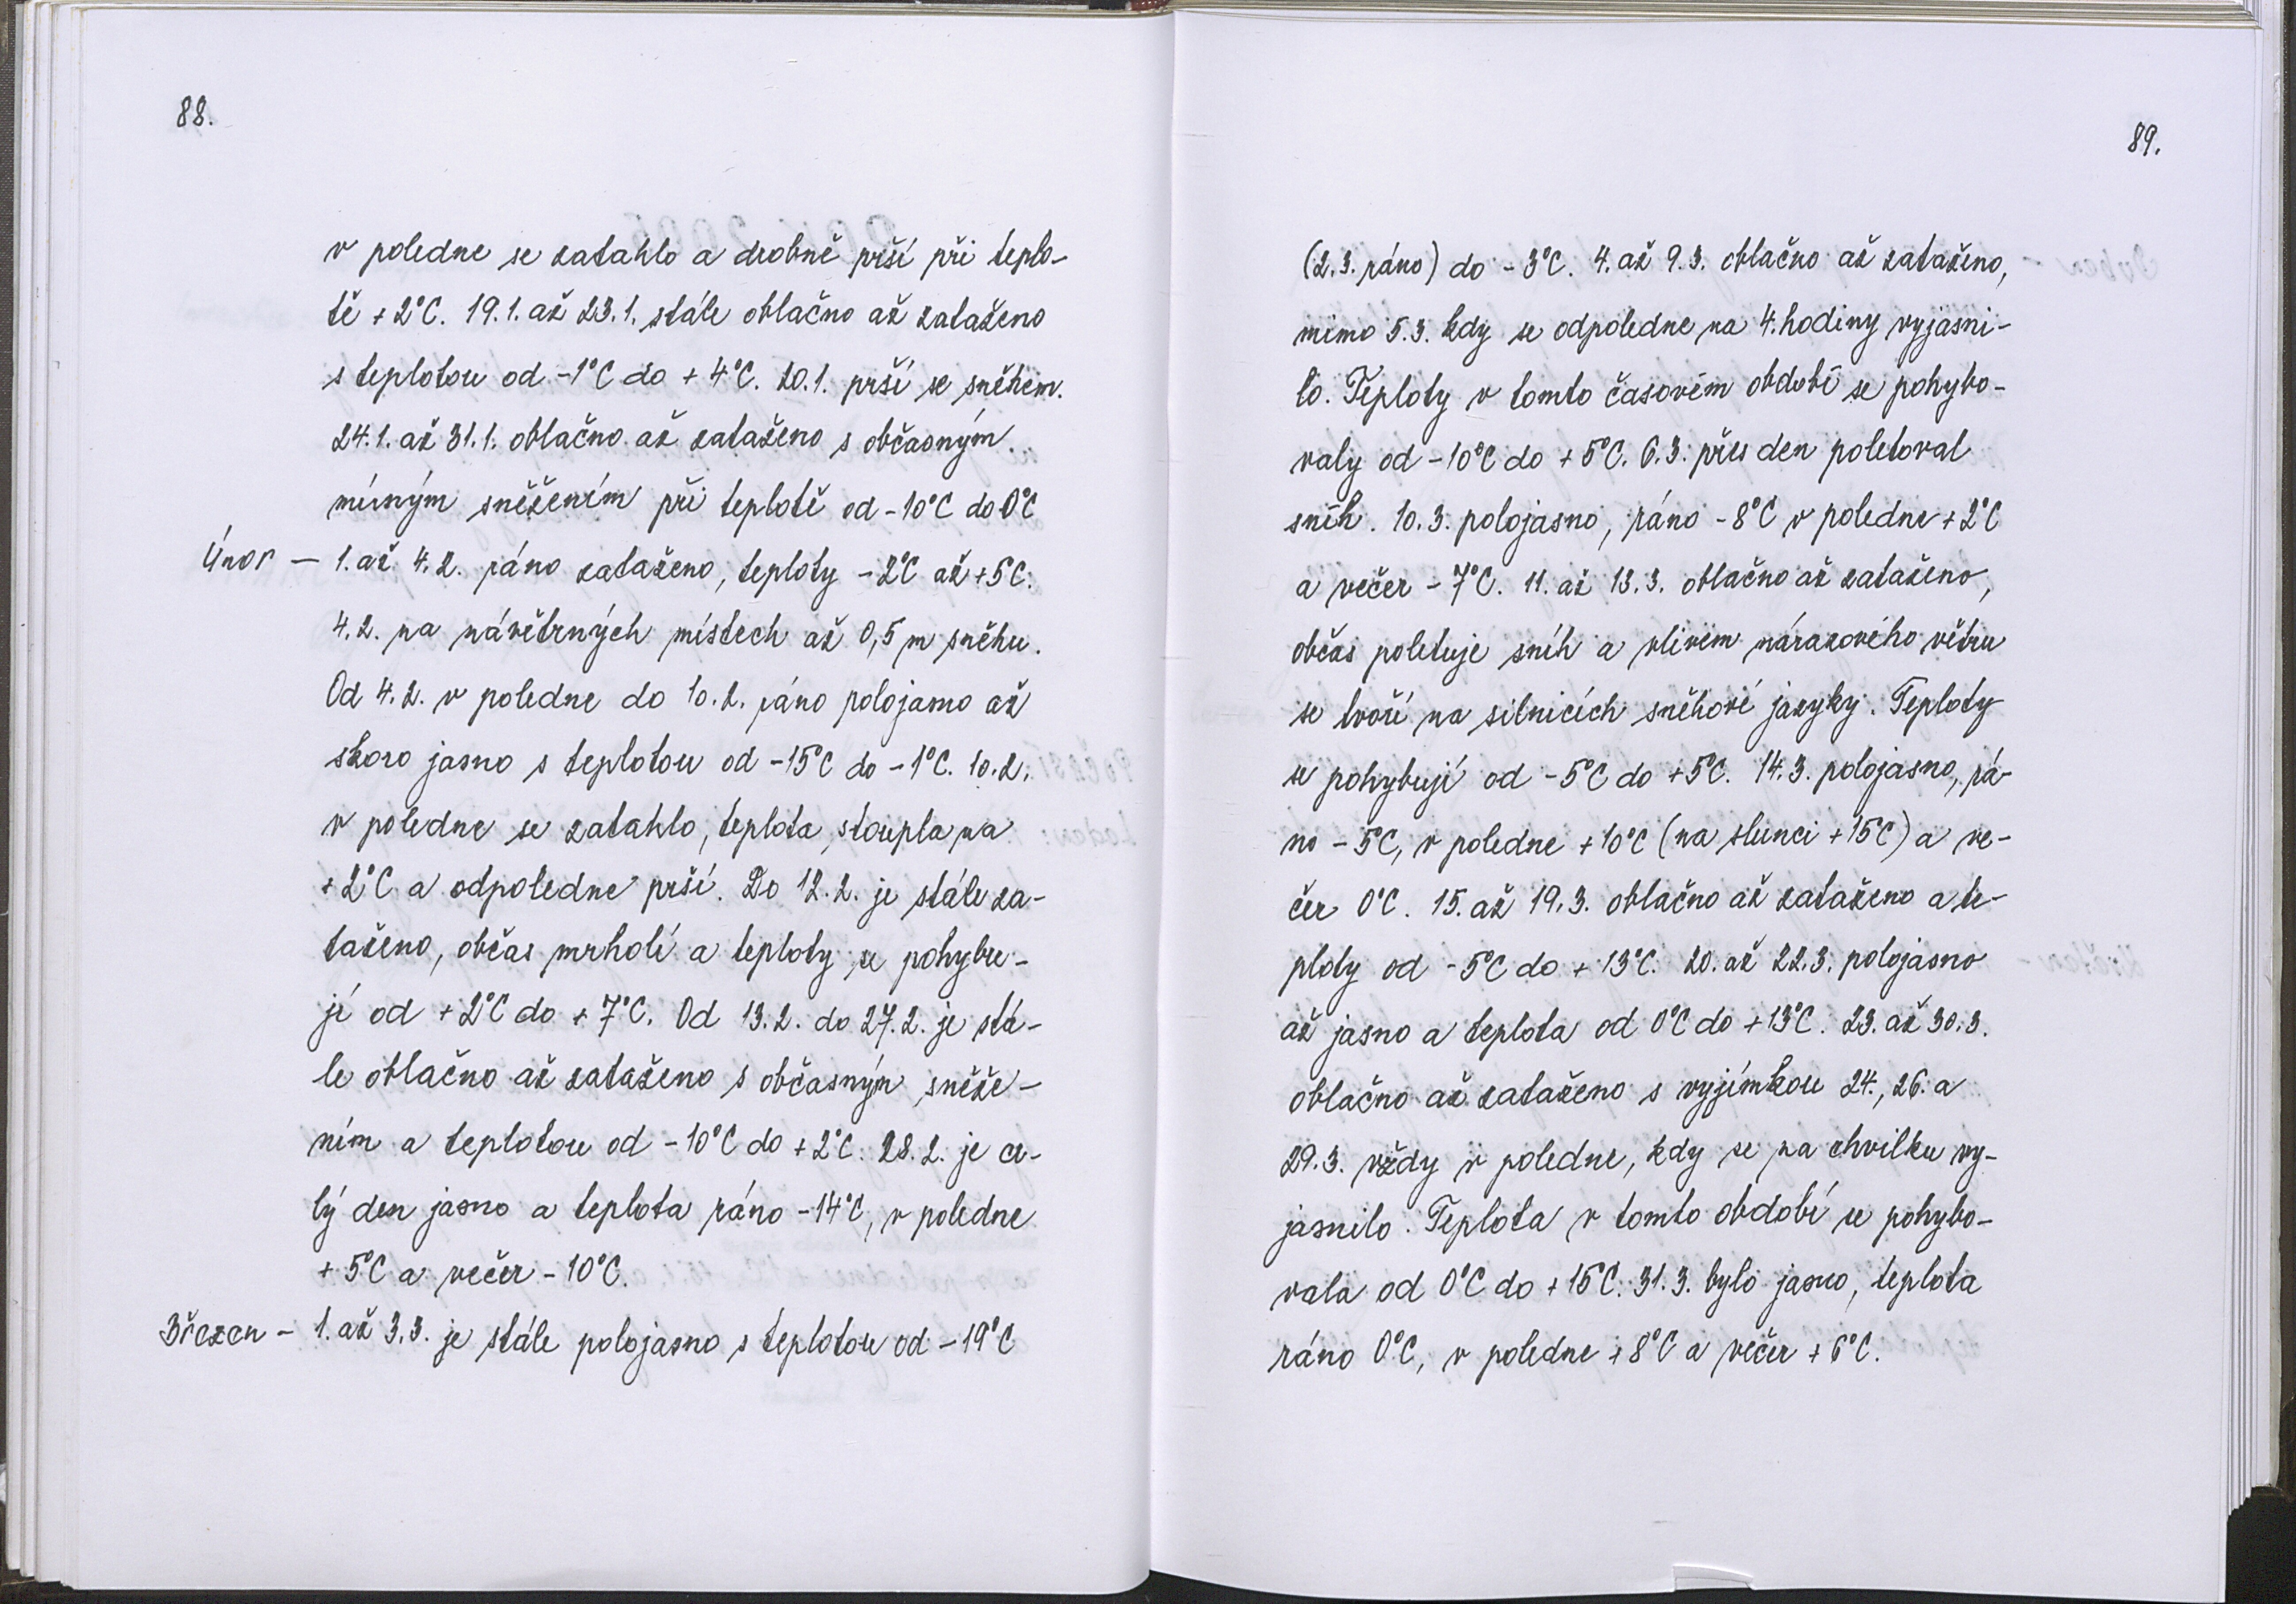 88.
v poledne se zatahlo a drobně prší při teplo-
tě +2°C. 19.1. až 23.1. stále oblačno až zataženo
s teplotou od -1°C do +4°C. 20.1. prší se sněhem.
24.1. až 31.1. oblačno až zataženo s občasným
mírným sněžením při teplotě od -10°C do 0°C
Únor — 1. až 4.2. ráno zataženo, teploty -2°C až +5°C.
4.2. na návětrných místech až 0,5 m sněhu.
Od 4.2. v poledne do 10.2. ráno polojasno až
skoro jasno s teplotou od -15°C do -1°C. 10.2.
v poledne se zatahlo, teplota stoupla na
+2°C a odpoledne prší. Do 12.2. je stále za-
taženo, občas mrholí a teploty se pohybu-
jí od +2°C do +7°C. Od 13.2. do 27.2. je stá-
le oblačno až zataženo s občasným sněže-
ním a teplotou od -10°C do +2°C. 28.2. je ce-
lý den jasno a teplota ráno -14°C, v poledne
+5°C a večer -10°C.
Březen - 1. až 3.3. je stále polojasno s teplotou od -19°C
89.
(2.3. ráno) do -3°C. 4. až 9.3. oblačno až zataženo,
mimo 5.3. kdy se odpoledne na 4. hodiny vyjasni-
lo. Teploty v tomto časovém období se pohybo-
valy od -10°C do +5°C. 6.3. přes den poletoval
sníh. 10.3. polojasno, ráno -8°C v poledne +2°C
a večer -7°C. 11. až 13.3. oblačno až zataženo,
občas poletuje sníh a vlivem nárazového větru
se tvoří na silnicích sněhové jazyky. Teploty
se pohybují od -5°C do +5°C. 14.3. polojasno, rá-
no -5°C, v poledne +10°C (na slunci +15°C) a ve-
čer 0°C. 15. až 19.3. oblačno až zataženo a te-
ploty od -5°C do +13°C. 20. až 22.3. polojasno
až jasno a teplota od 0°C do +13°C. 23. až 30.3.
oblačno až zataženo s vyjímkou 24., 26. a
29.3. vždy v poledne, kdy se na chvilku vy-
jasnilo. Teplota v tomto období se pohybo-
vala od 0°C do +15°C. 31.3. bylo jasno, teplota
ráno 0°C, v poledne +8°C a večer +6°C.